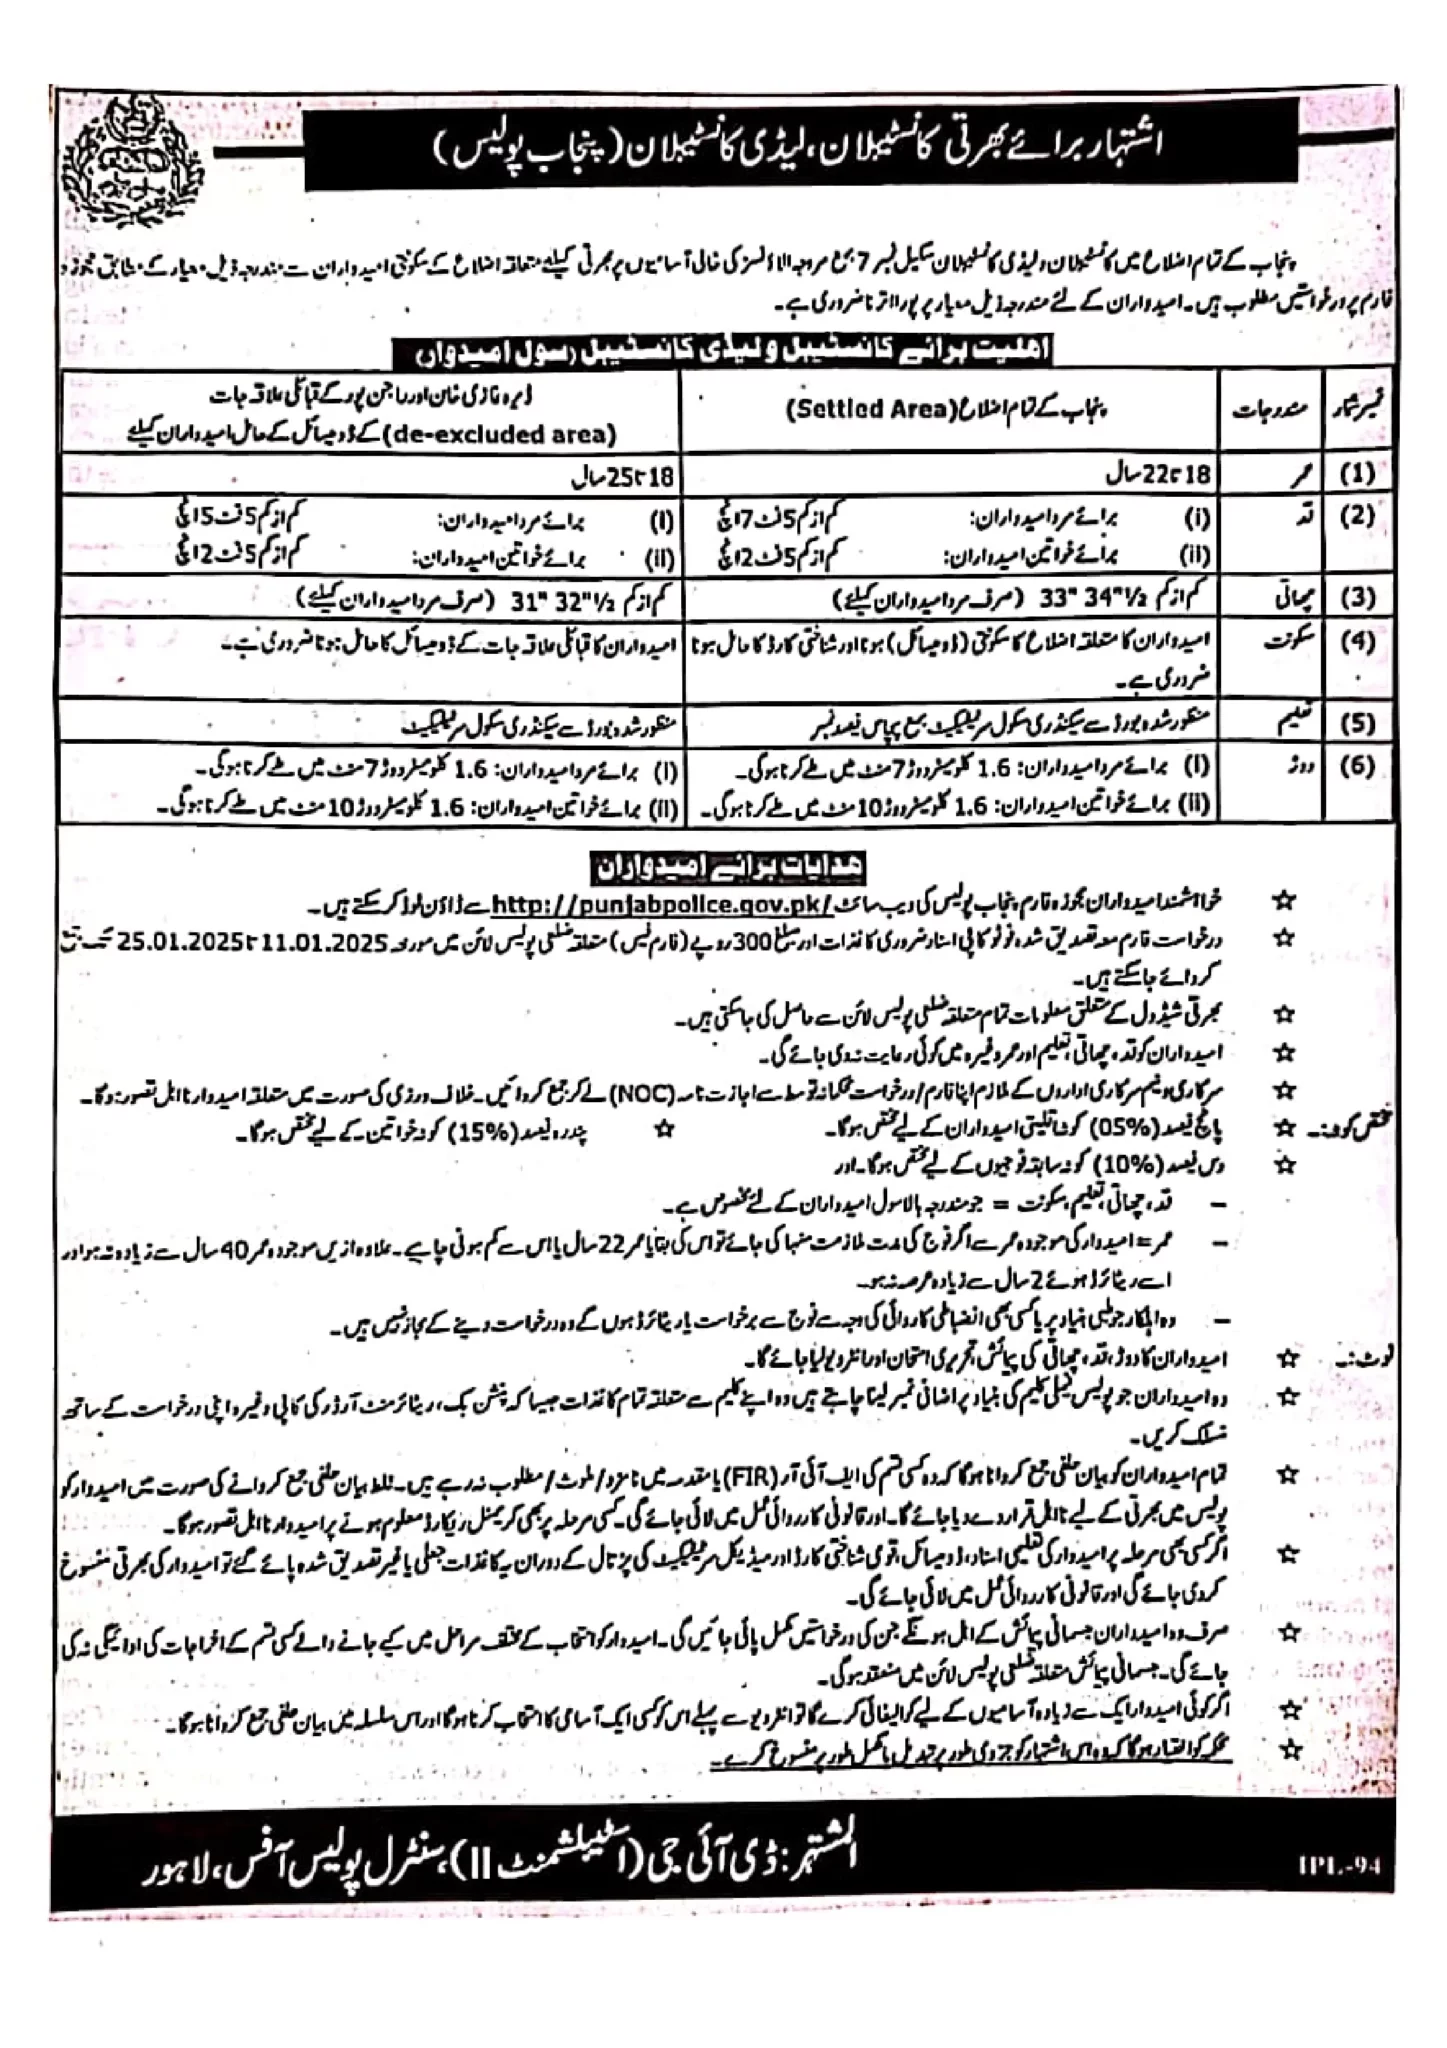 اشتہار برائے بھرتی کانسٹیبلان، لیڈی کانسٹیبلان (پنجاب پولیس)
پنجاب کے تمام اضلاع میں کانسٹیبلان و لیڈی کانسٹیبلان سکیل نمبر 7 بمع مروجہ الاؤنسز کی خالی آسامیوں پر بھرتی کیلئے متعلقہ اضلاع کے سکونتی امیدواران سے مندرجہ ذیل معیار کے مطابق مجوزہ
فارم پر درخواستیں مطلوب ہیں۔ امیدواران کے لئے مندرجہ ذیل معیار پر پورا اترنا ضروری ہے۔
اہلیت برائے کانسٹیبل و لیڈی کانسٹیبل (سول امیدوار)
نمبر شمار مندرجات پنجاب کے تمام اضلاع (Settled Area) ڈیرہ غازی خان اور راجن پور کے قبائلی علاقہ جات
(de-excluded area) کے ڈومیسائل کے حامل امیدواران کیلئے
(1) عمر 18 تا 22 سال 18 تا 25 سال
(2) قد (i) برائے مرد امیدواران: کم از کم 5 فٹ 7 انچ (i) برائے مرد امیدواران: کم از کم 5 فٹ 5 انچ
(ii) برائے خواتین امیدواران: کم از کم 5 فٹ 2 انچ (ii) برائے خواتین امیدواران: کم از کم 5 فٹ 2 انچ
(3) چھاتی کم از کم 33" 34"½ (صرف مرد امیدواران کیلئے) کم از کم 31" 32"½ (صرف مرد امیدواران کیلئے)
(4) سکونت امیدواران کا متعلقہ اضلاع کا سکونتی (ڈومیسائل) ہونا اور شناختی کارڈ کا حامل ہونا امیدواران کا قبائلی علاقہ جات کے ڈومیسائل کا حامل ہونا ضروری ہے۔
ضروری ہے۔
(5) تعلیم منظور شدہ بورڈ سے سیکنڈری سکول سرٹیفکیٹ بمع پچاس فیصد نمبر منظور شدہ بورڈ سے سیکنڈری سکول سرٹیفکیٹ
(6) دوڑ (i) برائے مرد امیدواران: 1.6 کلومیٹر دوڑ 7 منٹ میں طے کرنا ہوگی۔ (i) برائے مرد امیدواران: 1.6 کلومیٹر دوڑ 7 منٹ میں طے کرنا ہوگی۔
(ii) برائے خواتین امیدواران: 1.6 کلومیٹر دوڑ 10 منٹ میں طے کرنا ہوگی۔ (ii) برائے خواتین امیدواران: 1.6 کلومیٹر دوڑ 10 منٹ میں طے کرنا ہوگی۔
ہدایات برائے امیدواران
☆ خواہشمند امیدواران مجوزہ فارم پنجاب پولیس کی ویب سائٹ http://punjabpolice.gov.pk/ سے ڈاؤن لوڈ کر سکتے ہیں۔
☆ درخواست فارم معہ تصدیق شدہ فوٹو کاپی اسناد ضروری کاغذات اور مبلغ 300 روپے (فارم فیس) متعلقہ ضلعی پولیس لائن میں مورخہ 11.01.2025 تا 25.01.2025 تک جمع
کروائے جا سکتے ہیں۔
☆ بھرتی شیڈول کے متعلق معلومات تمام متعلقہ ضلعی پولیس لائن سے حاصل کی جا سکتی ہیں۔
☆ امیدواران کو قد، چھاتی، تعلیم اور عمر وغیرہ میں کوئی رعایت نہ دی جائے گی۔
☆ سرکاری و نیم سرکاری اداروں کے ملازم اپنا فارم/درخواست محکمانہ توسط سے اجازت نامہ (NOC) لے کر جمع کروائیں۔ خلاف ورزی کی صورت میں متعلقہ امیدوار نااہل تصور ہوگا۔
مختص کوٹہ:۔ ☆ پانچ فیصد (05%) کوٹہ اقلیتی امیدواران کے لیے مختص ہوگا۔ ☆ پندرہ فیصد (15%) کوٹہ خواتین کے لیے مختص ہوگا۔
☆ دس فیصد (10%) کوٹہ سابقہ فوجیوں کے لیے مختص ہوگا۔ اور
– قد، چھاتی، تعلیم، سکونت = جو مندرجہ بالا سول امیدواران کے لئے مخصوص ہے۔
– عمر = امیدوار کی موجودہ عمر سے اگر فوج کی مدت ملازمت منہا کی جائے تو اس کی بقایا عمر 22 سال یا اس سے کم ہونی چاہیے۔ علاوہ ازیں موجودہ عمر 40 سال سے زیادہ نہ ہو اور
اسے ریٹائرڈ ہوئے 2 سال سے زیادہ عرصہ نہ ہو۔
– وہ اہلکار جو طبی بنیاد پر یا کسی بھی انضباطی کاروائی کی وجہ سے فوج سے برخواست یا ریٹائرڈ ہوں گے وہ درخواست دینے کے مجاز نہیں ہیں۔
نوٹ:۔ ☆ امیدواران کا دوڑ، قد، چھاتی کی پیمائش، تحریری امتحان اور انٹرویو لیا جائے گا۔
☆ وہ امیدواران جو پولیس فیملی کلیم کی بنیاد پر اضافی نمبر لینا چاہتے ہیں وہ اپنے کلیم سے متعلقہ تمام کاغذات جیسا کہ پنشن بک، ریٹائرمنٹ آرڈر کی کاپی وغیرہ اپنی درخواست کے ساتھ
منسلک کریں۔
☆ تمام امیدواران کو بیان حلفی جمع کروانا ہوگا کہ وہ کسی قسم کی ایف آئی آر (FIR) یا مقدمہ میں نامزد/ملوث/مطلوب نہ رہے ہیں۔ غلط بیان حلفی جمع کروانے کی صورت میں امیدوار کو
پولیس میں بھرتی کے لیے نااہل قرار دے دیا جائے گا۔ اور قانونی کارروائی عمل میں لائی جائے گی۔ کسی مرحلہ پر بھی کریمنل ریکارڈ معلوم ہونے پر امیدوار نااہل تصور ہوگا۔
☆ اگر کسی بھی مرحلہ پر امیدوار کی تعلیمی اسناد، ڈومیسائل، قومی شناختی کارڈ اور میڈیکل سرٹیفکیٹ کی پڑتال کے دوران یہ کاغذات جعلی یا غیر تصدیق شدہ پائے گئے تو امیدوار کی بھرتی منسوخ
کر دی جائے گی اور قانونی کارروائی عمل میں لائی جائے گی۔
☆ صرف وہ امیدواران جسمانی پیمائش کے اہل ہونگے جن کی درخواستیں مکمل پائی جائیں گی۔ امیدوار کو انتخاب کے مختلف مراحل میں کیے جانے والے کسی قسم کے اخراجات کی ادائیگی نہ کی
جائے گی۔ جسمانی پیمائش متعلقہ ضلعی پولیس لائن میں منعقد ہوگی۔
☆ اگر کوئی امیدوار ایک سے زیادہ آسامیوں کے لیے کوالیفائی کرے گا تو انٹرویو سے پہلے اس کو کسی ایک آسامی کا انتخاب کرنا ہوگا اور اس سلسلہ میں بیان حلفی جمع کروانا ہوگا۔
☆ محکمہ کو اختیار ہوگا کہ وہ اس اشتہار کو جزوی طور پر تبدیل یا مکمل طور پر منسوخ کرے۔
المشتہر: ڈی آئی جی (اسٹیبلشمنٹ II)، سنٹرل پولیس آفس، لاہور
IPL-94